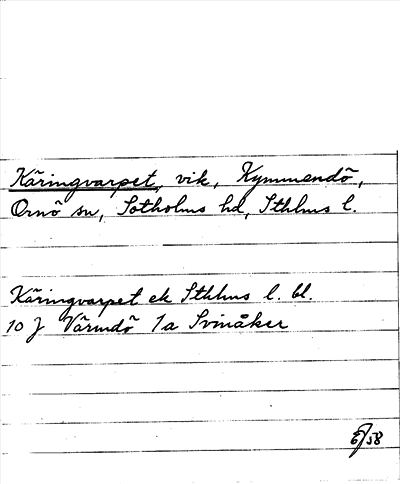 Käringvarpet, vik, Kymmendö,
Ornö sn, Sotholms hd, Sthlms l.
Käringvarpet ek Sthlms l. bl.
10 J Värmdö 1a Svinåker
/58